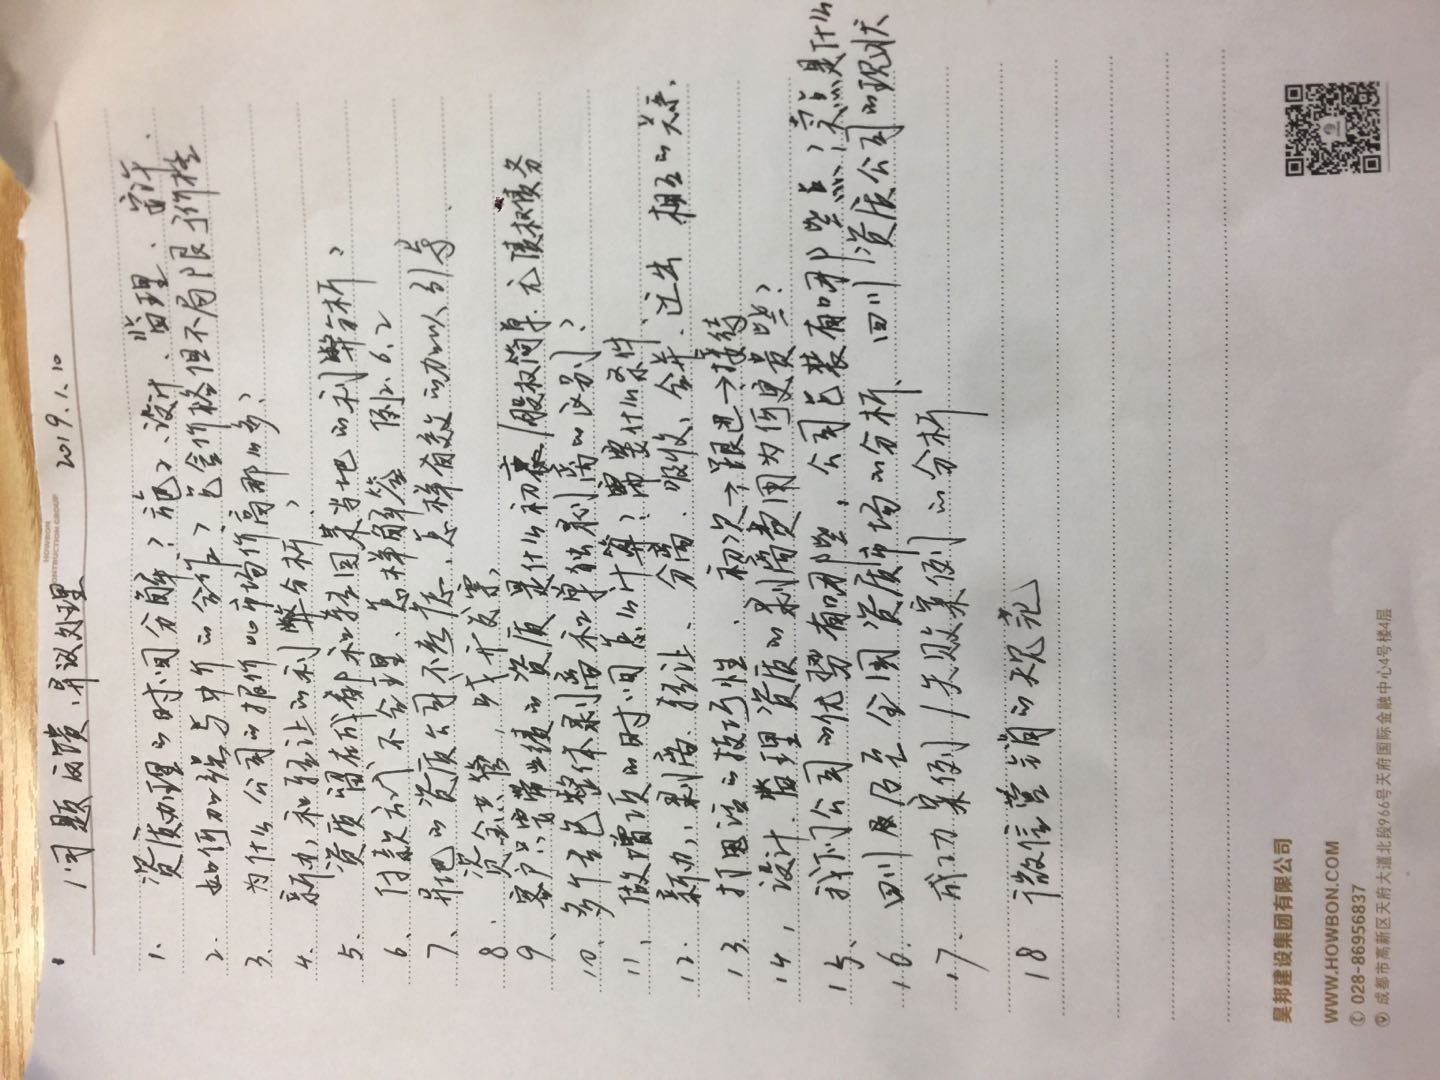 HOWBON
CONTRUCTION GROUP
问题反馈、异议处理 2019.1.10
1. 资质办理的时间分解？施工、设计、监理、安许.
2. 如何加强与中介的合作？包含价格但不局限于价格
3. 为什么公司的报价比市场价高那么多？
4. 新办,和转让的利弊分析？
5、 资质留在成都和转回某当地的利弊分析？
6、 付款方式不合理、怎样解答 例2.6.2
7、异地的资质公司不考虑,怎样有效的加以引导.
8. 资金共管，开发票,
9、客户只要带业绩的资质是什么初衷/股权简单.无债权债务
10、多个专包整体剥离和单独剥离的区别？
11、做增项的时间怎么计算？需要什么条件.
12. 新办,、剥离、转让、分离、吸收、合并、迁出 相互的关系.
13. 打电话的技巧性、初次→跟进→接待
14, 设计、监理资质的剥离费用为何更贵些？
15、我们公司的优势有哪些，公司包装有哪些点？卖点是什么
16. 四川及乃至全国资质市场的分析、四川资质公司的现状
17. 成功案例/失败案例的分析
18 微信营销的规范
昊邦建设集团有限公司
WWW.HOWBON.COM
028-86956837
成都市高新区天府大道北段966号天府国际金融中心4号楼4层